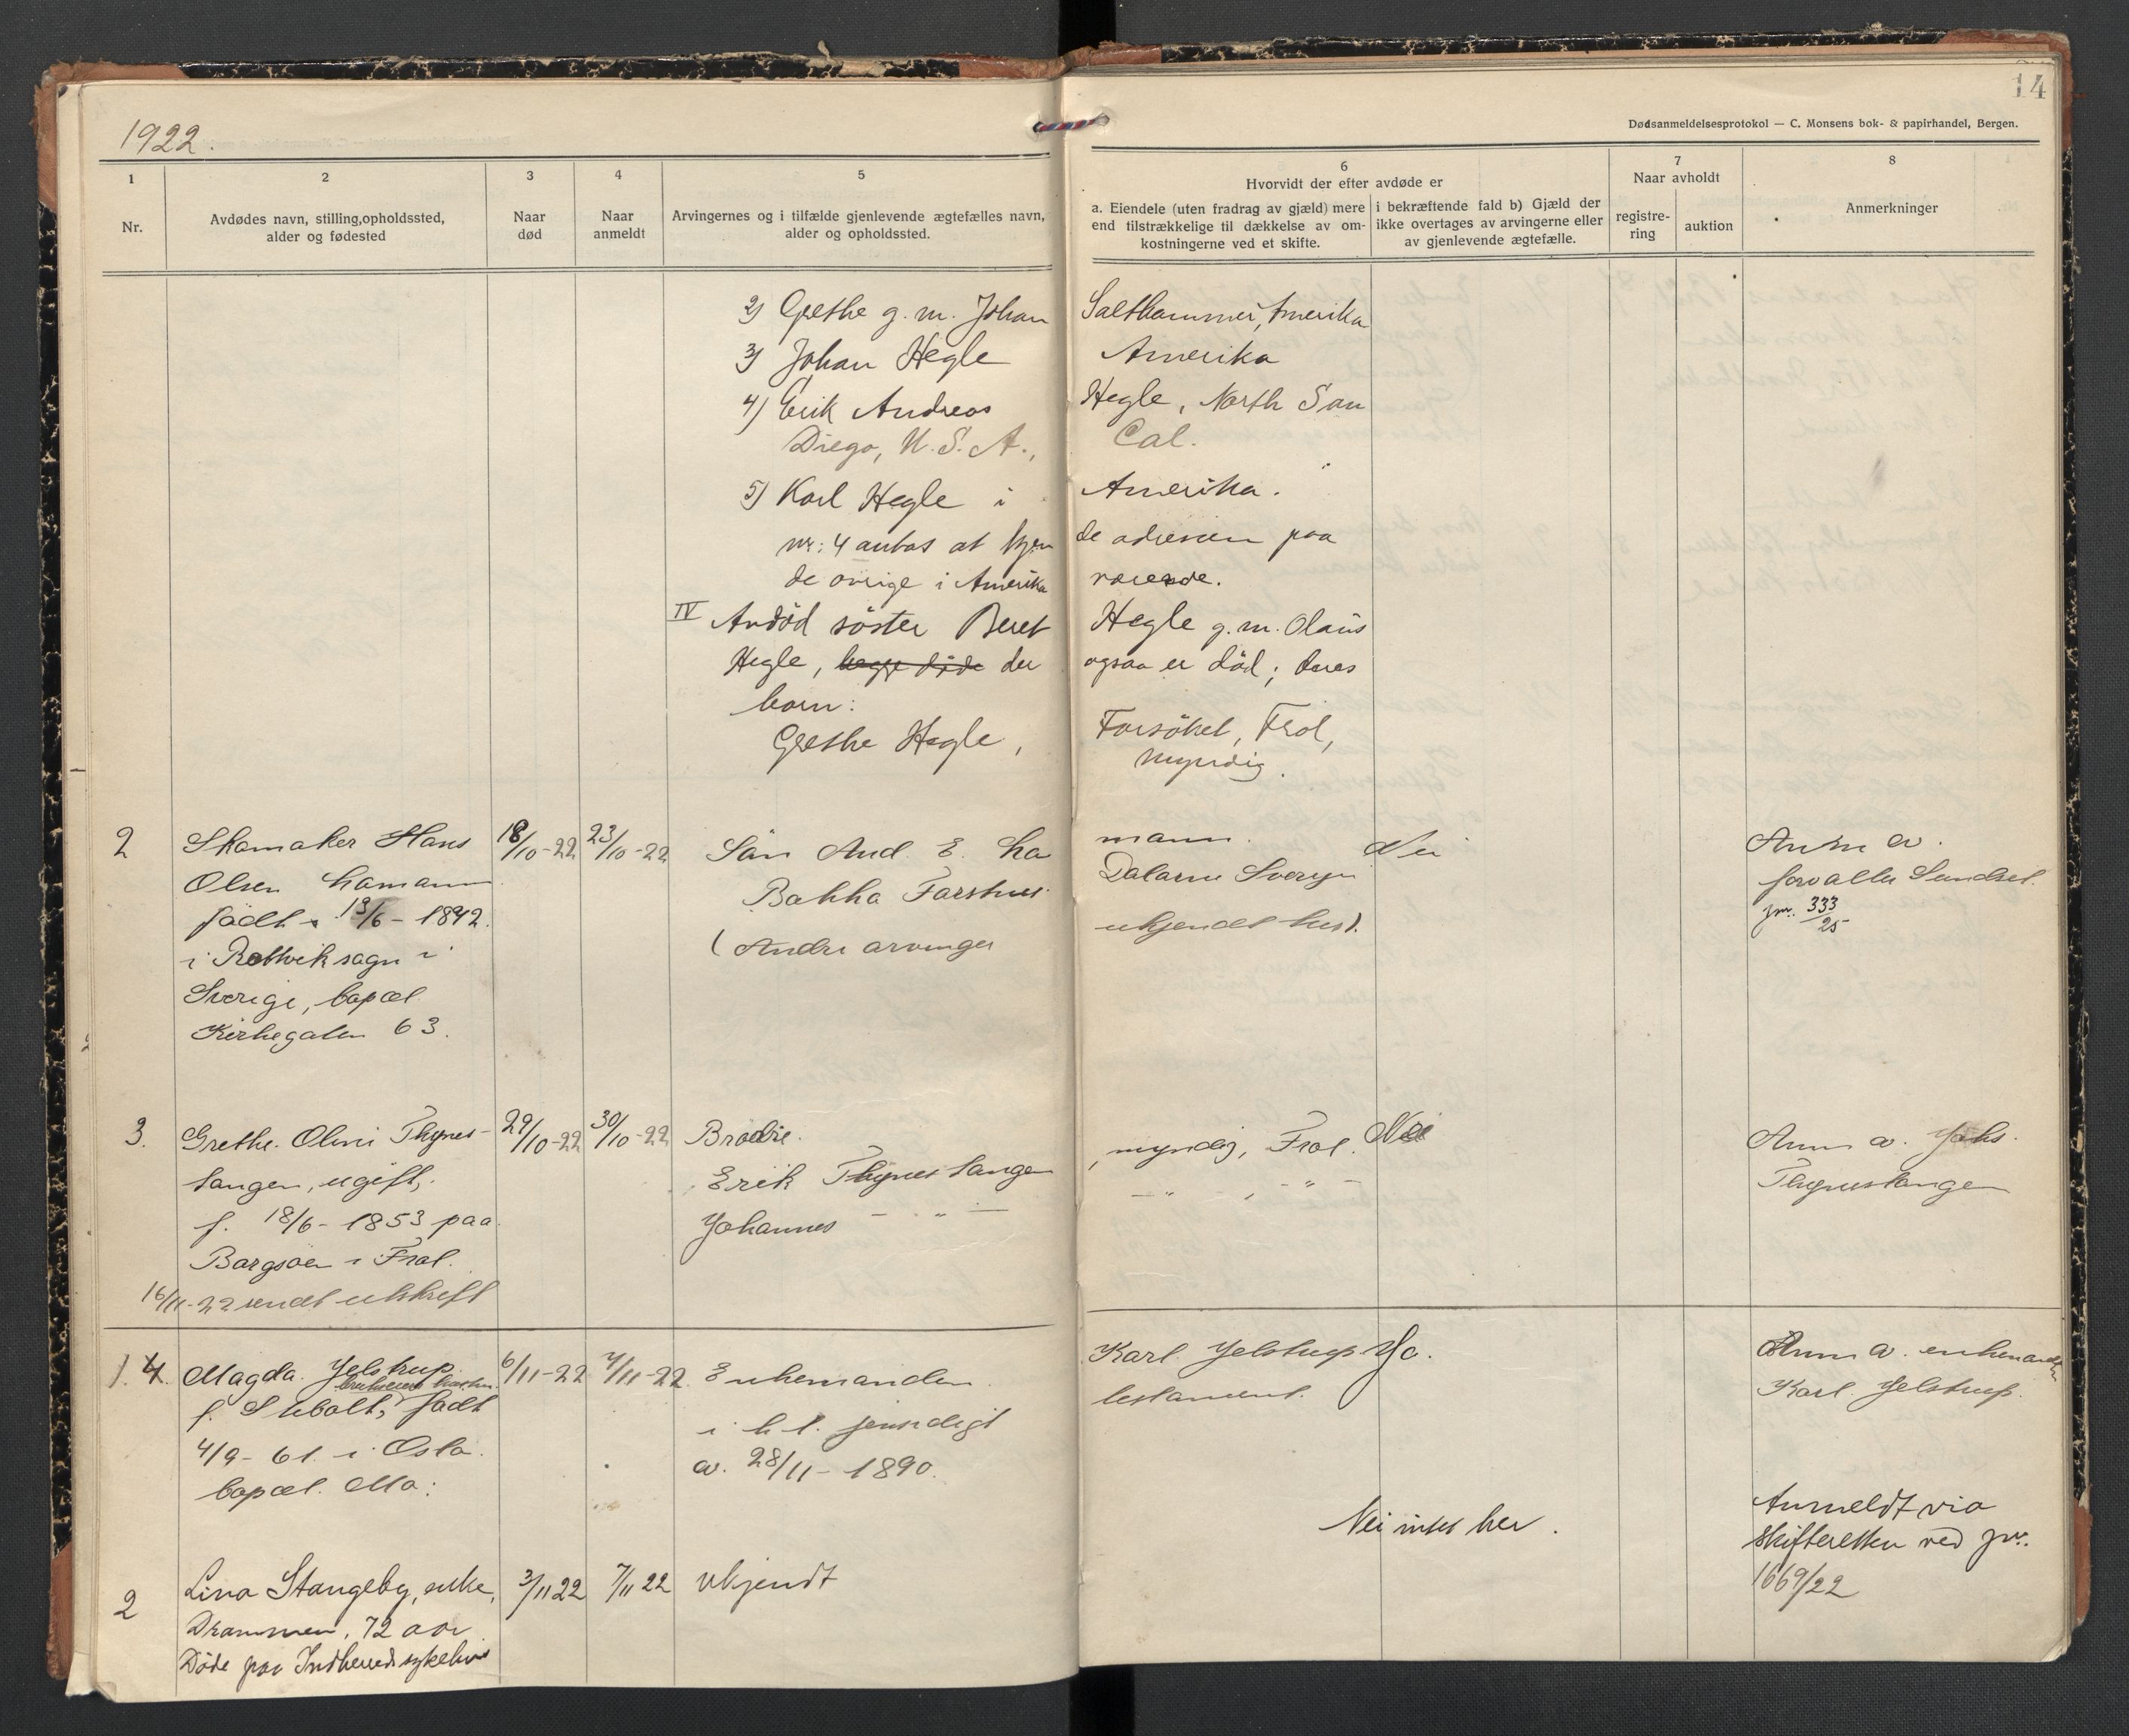 14
Dødsanmeldelsesprotokol — C. Monsens bok- & papirhandel, Bergen.
1922.
1
Nr.
2
Avdødes navn, stilling, opholdssted,
alder og fødested
3
Naar
død
4
Naar
anmeldt
5
Arvingernes og i tilfælde gjenlevende ægtefælles navn,
alder og opholdssted.
6
Hvorvidt der efter avdøde er
a. Eiendele (uten fradrag av gjæld) mere
end tilstrækkelige til dækkelse av om-
kostningerne ved et skifte.
i bekræftende fald b) Gjæld der
ikke overtages av arvingerne eller
av gjenlevende ægtefælle.
7
Naar avholdt
registre-
ring
auktion
8
Anmerkninger
2) Grethe g. m. Johan Salthammer, Amerika
3) Johan Hegle Amerika
4) Erik Andreas Hegle, North San
Diego, U. S. A., Cal.
5) Karl Hegle i Amerika.
nr: 4 antas at kjen de adressen paa
de øvrige i Amerika værende.
IV Avdöd söster Beret Hegle g. m. Olaus
Hegle, begge døde der ogsaa er död; deres
barn:
Grethe Hegle, Forsöket, Frol,
myndig.
2 Skomaker Hans 18/10-22 23/10-22 Sön And. E. Ho mann. Nei Anm. av.
Olsen Homann Bakka Dalarne Sverge forvalter Sundset.
född 19/6-1842. (Andre arvinger ukjendt her). jnr. 333/25
i Rettvik sogn i
Sverige, bopæl
Kirkegaten 63.
3. Grethe Oline Thynes- 29/10-22 30/10-22 Brödre. Nei Anm. av. Johs.
tangen, ugift, Erik Thynestangen, myndig, Frol. Thynestangen
f. 18/6-1853 paa Johannes — " — — " — , — " —
Borgsöen i Frol.
16/11-22 sendt utskrift
1. 4. Magda Jelstrup 6/11-22 7/11-22 Enkemanden Karl Jelstrup Ja. Anm. av. enkemanden
f. Sibolt, födt i h. t. gjensidigt testament. Karl Jelstrup.
4/9-61 i Oslo. av. 28/11-1890.
bopæl. Mo:
2 Lina Stangeby, enke, 3/11 22 7/11 22 Ukjendt Nei intet her. Anmeldt via
Drammen, 72 aar skifteretten ved jnr.
Døde paa Indherreds sykehus 1669/22